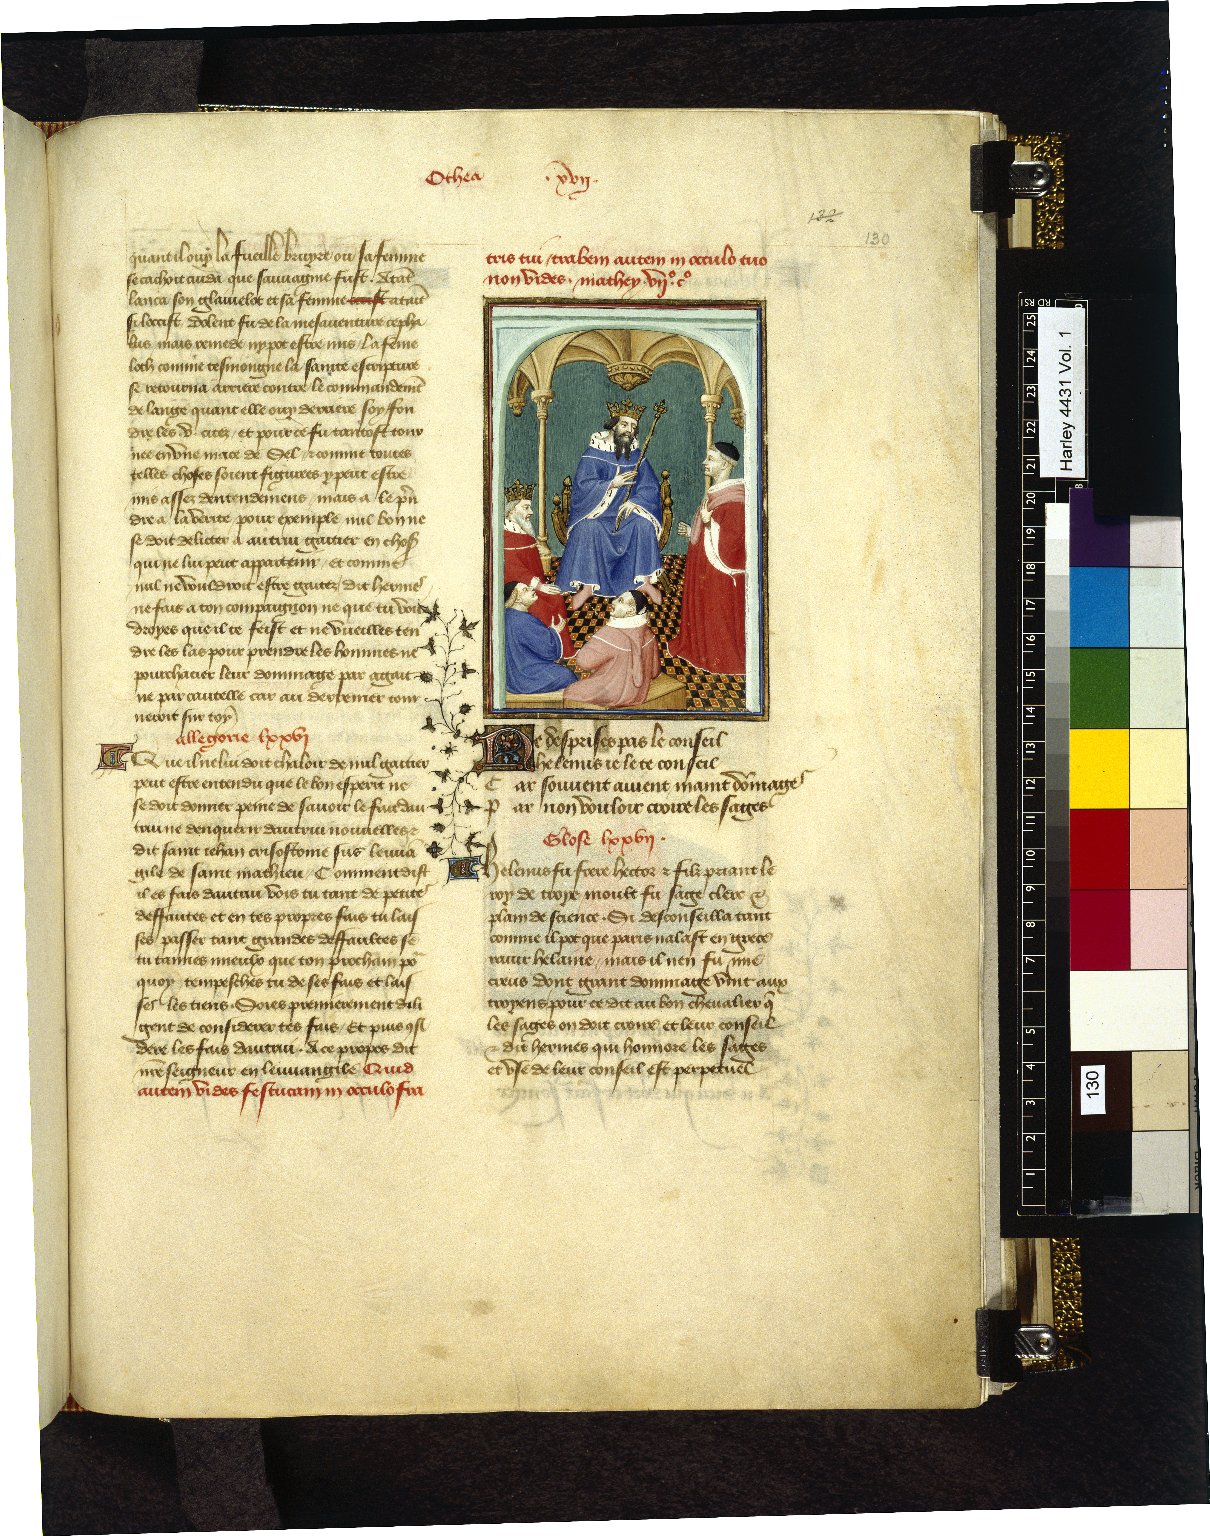 Othea .xvij.
132
130
quant il ouy la fueille bruyre ou sa femme
se cachoit cuida que sauuagine fust. Et
lanca son glauelot et sa femme occist ataīt
si loccist Dolent fu de la mesauenture cepha
lus mais remede ny pot estre mis / la feme
loth comme tesmoigne la sainte escripture
se retourna arriere contre le commandemēt
de lange quant elle ouy derriere soy fon
dre les .v. citez / et pour ce fu tantost tour
nee en vne mace de Sel / et comme toutes
telles choses soient figures y peut estre
mis assez dentendemens / mais a le pn
dre a la verite pour exemple nul bon ne
se doit deliter a autrui gaitier en chose
qui ne lui peut appartenir / Et comme
nul ne vouldroit estre gaitez dit hermes
ne fais a ton compaignon ne que tu voul
droyes que il te feist et ne vueilles ten
dre les las pour prendre les hommes ne
pourchacier leur dommage par agait
ne par cautelle car au derrenier tour
neroit sur toy
allegorie lxxvi
Que il ne lui doit chaloir de nul gaitier
peut estre entendu que le bon esperit ne
se doit donner peine de sauoir le fait dau
trui ne denquerir dautrui nouuelles et
dit saint iehan crisostome sus leuua
gile de saint mathieu / Comment dist
il es fais dautrui vois tu tant de petites
deffautes et en tes propres fais tu lais
ses passer tant grandes deffaultes se
tu tamies mieulx que ton prochain po
quoy tempesches tu de ses fais et lais
ses les tiens. Soies premierement dili
gent de considerer tes fais / Et puis gsi
dere les fais dautrui. A ce propos dit
nr̄e seigneur en leuuangile Quid
autem vides festucam in occulo fra
tris tui / trabem autem in occulo tuo
non vides. mathey .vij.º cº
Ne desprises pas le conseil
helenus ie le te conseil
Car souuent auient maint dōmage
Par non vouloir croire les sages
Glose lxxvij.
Helenus fu frere hector et filz priant le
roy de troye moult fu sage clerc et
plain de science. Si desconseilla tant
comme il pot que paris nalast en grece
rauir helaine / mais il nen fu mie
creus dont grant dommage vint aux
troyens pour ce dit au bon cheualier q̄
les sages on doit croire et leur conseil
et dit hermes qui honnore les sages
et vse de leur conseil est perpetuel
Harley 4431 Vol. 1
130
25
24
23
22
21
20
19
18
17
16
15
14
13
12
11
10
9
8
7
6
5
4
3
2
1